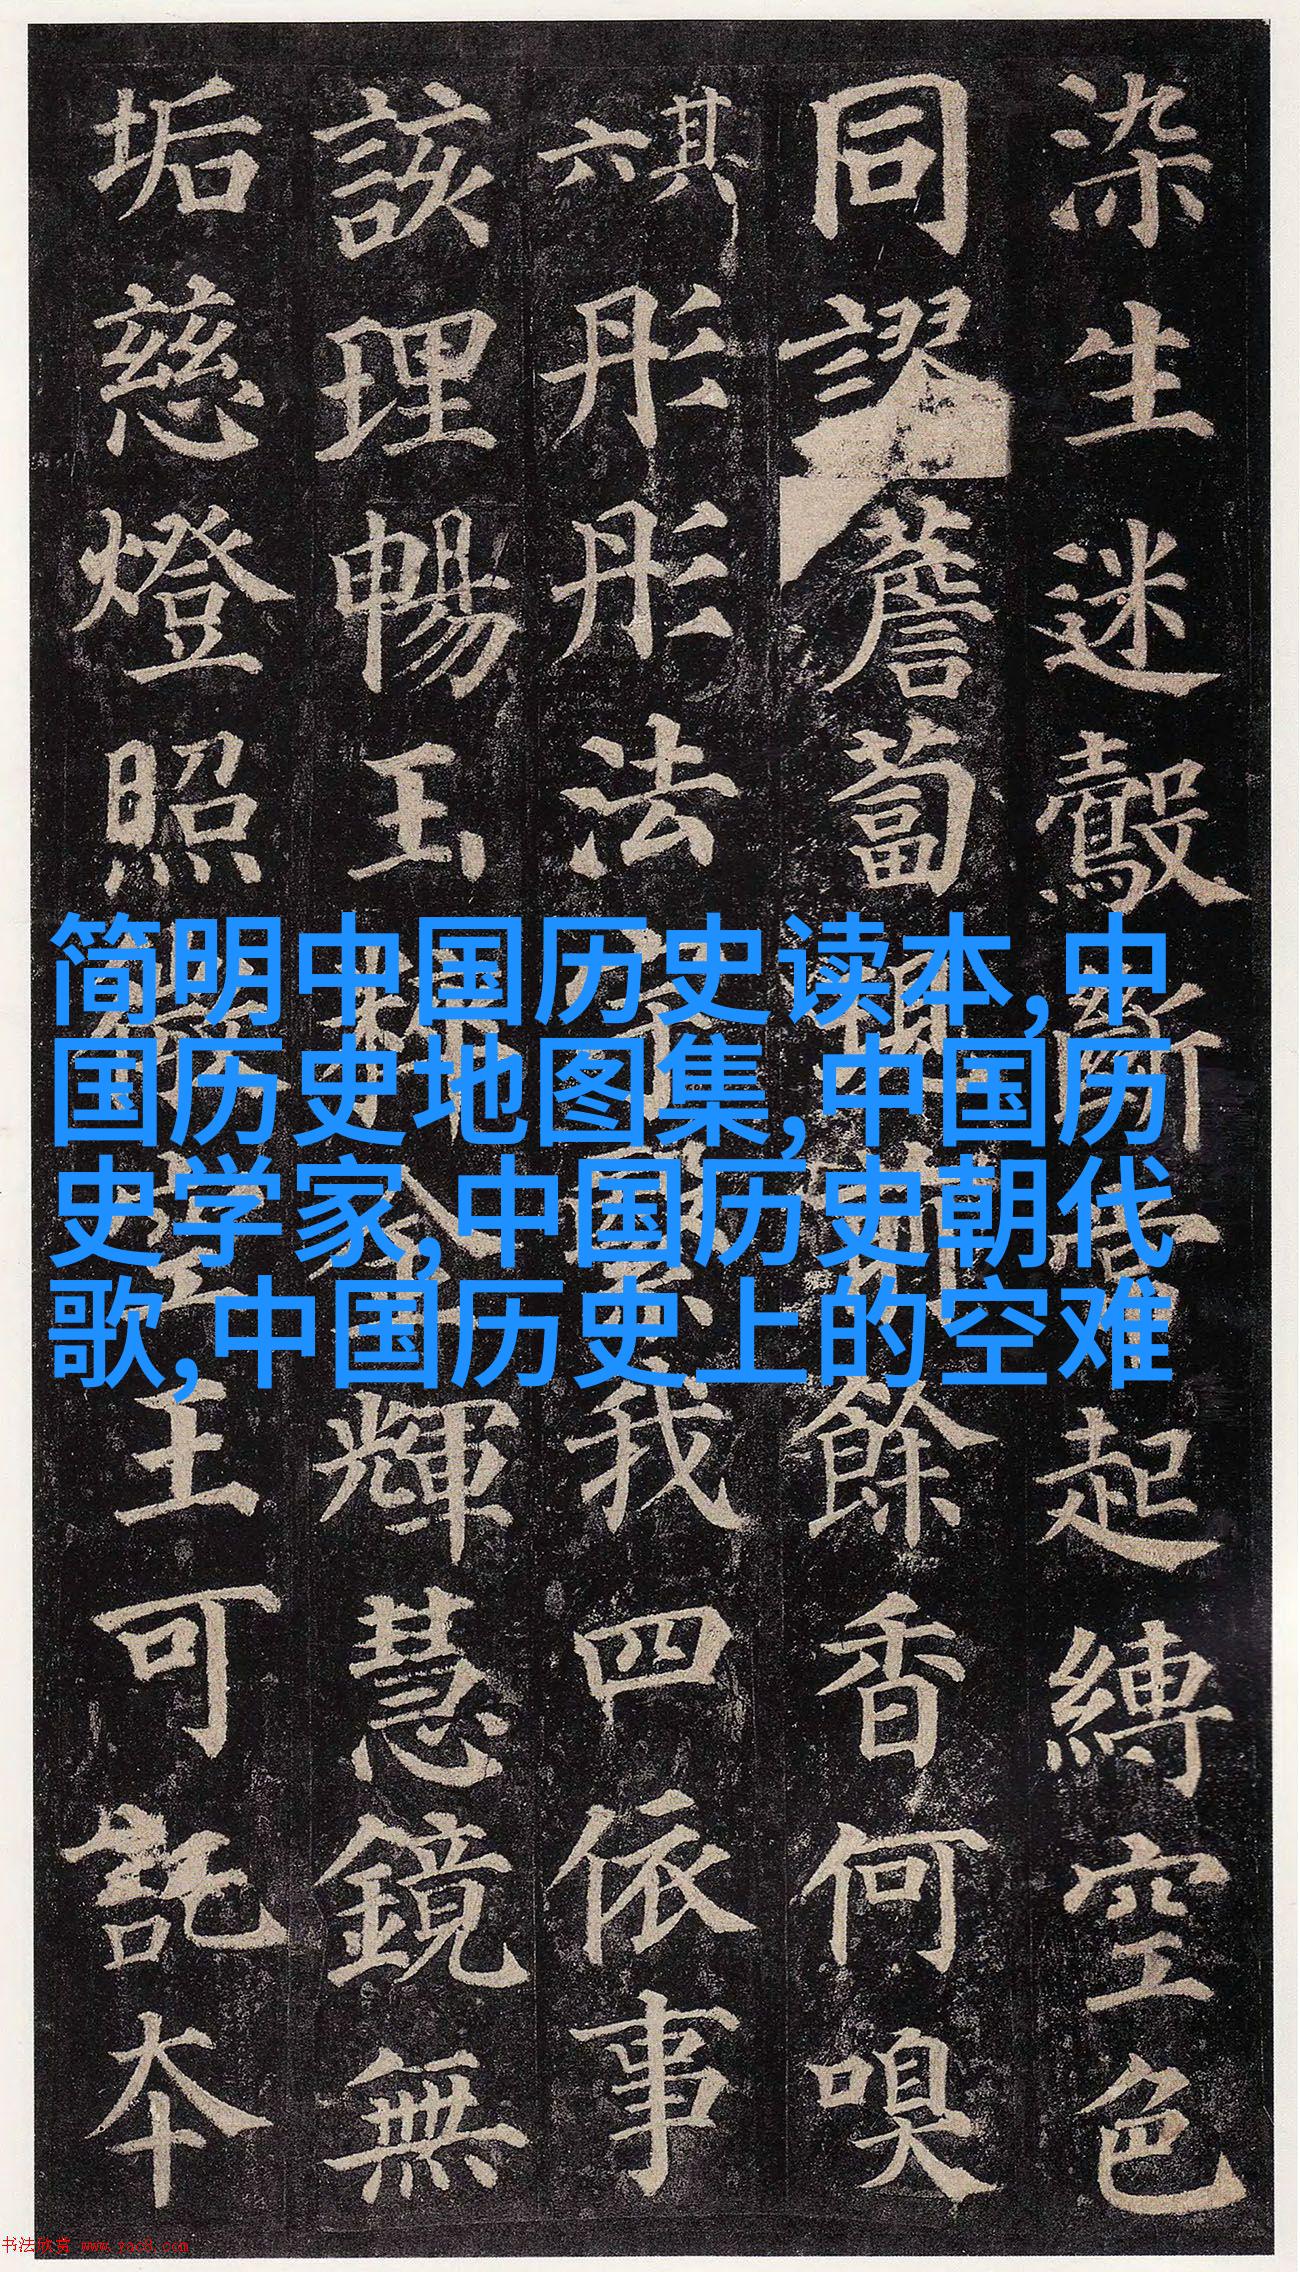 染生迷鷇斷常起縛空色
同謬薝蔔現前餘香何嗅
其六彤彤法宇繄我四依事
該理暢玉粹金輝慧鏡無
垢慈燈照微空王可託本
简明中国历史读本,中
国历史地图集,中国历
史学家,中国历史朝代
歌,中国历史上的空难
书法欣赏 www.yac8.com